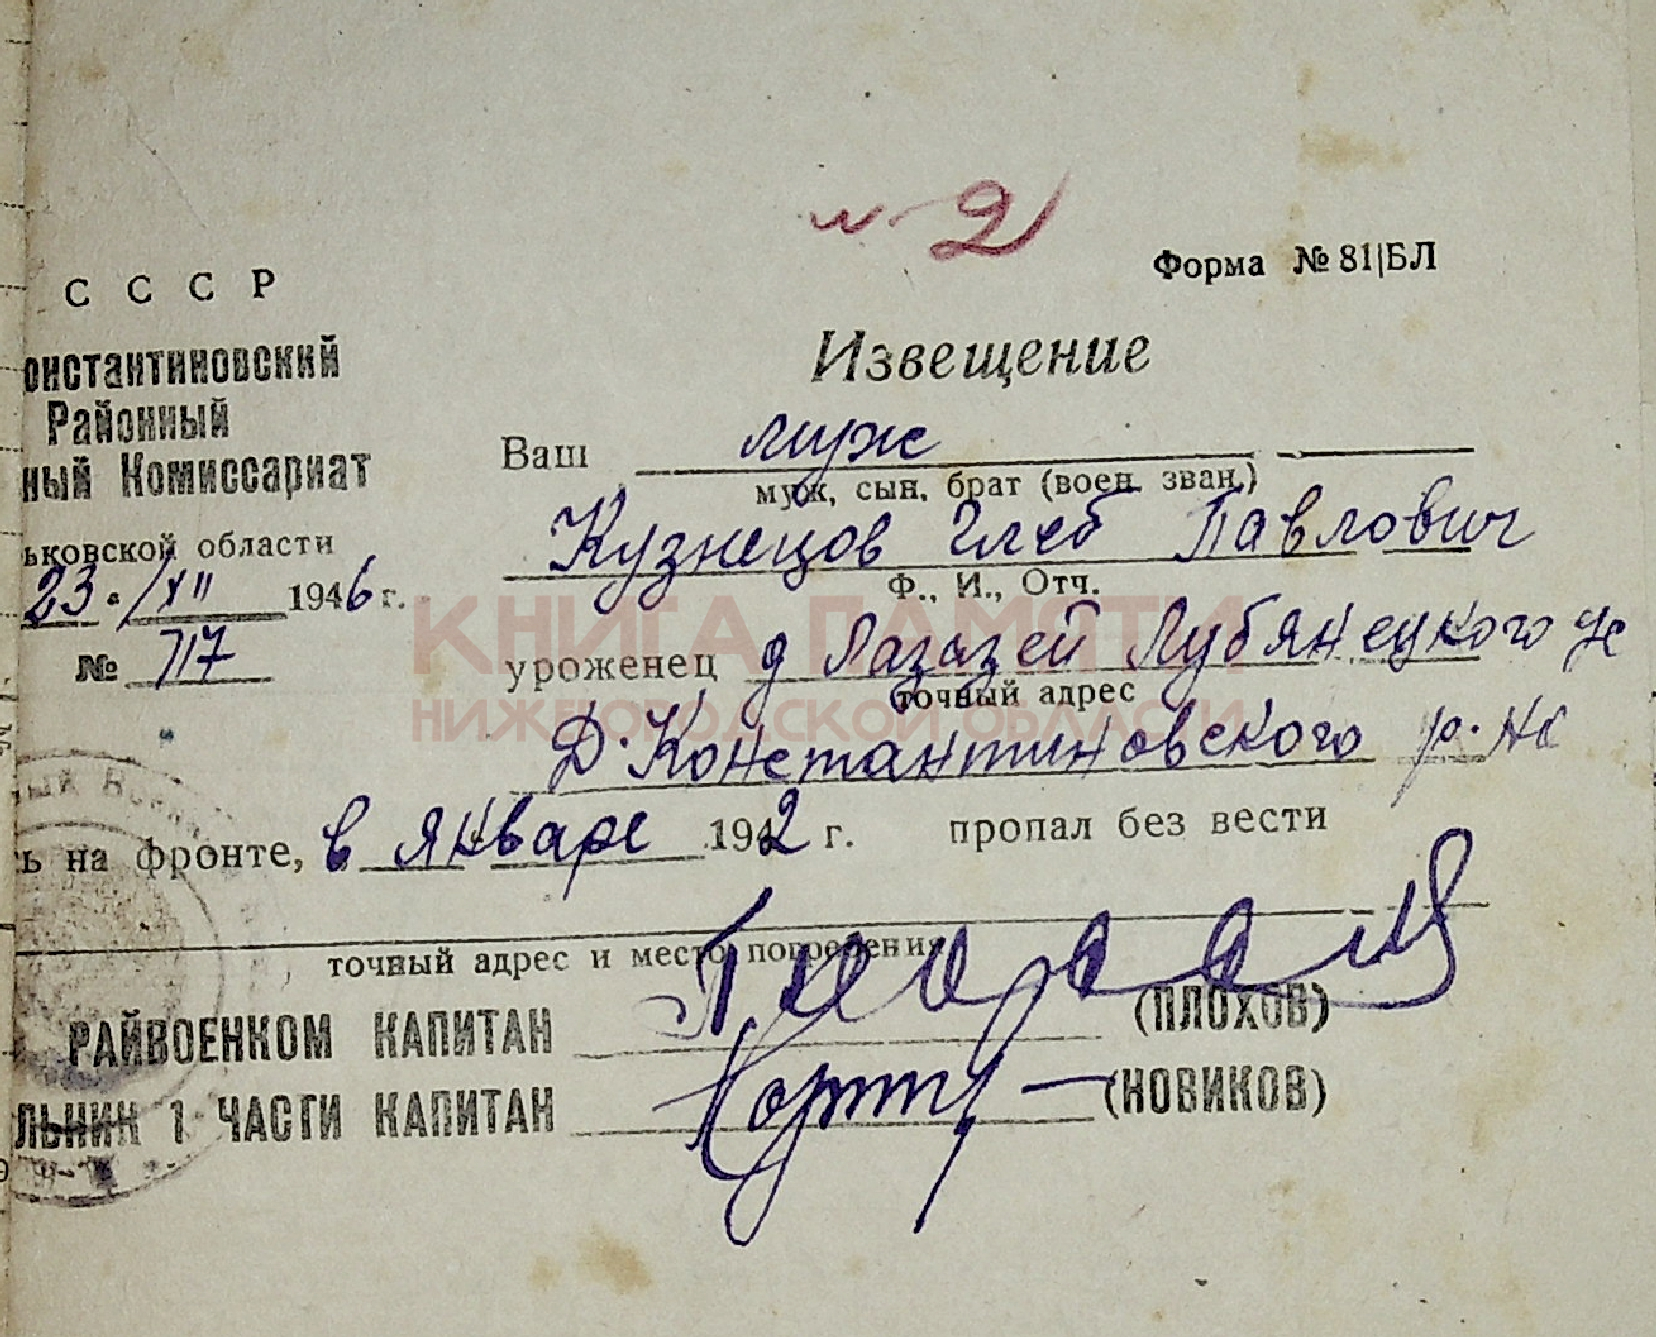 № 2
Форма № 81|БЛ
С С С Р
онстантиновский
Районный
ный Комиссариат
ьковской области
23. XII 1946 г.
№ 717
Извещение
Ваш муж
муж, сын, брат (воен. зван.)
Кузнецов Глеб Павлович
Ф., И., Отч.
КНИГА ПАМЯТИ
НИЖЕГОРОДСКОЙ ОБЛАСТИ
уроженец д Лазазей Лубянецкого
точный адрес
Д. Константиновского р. на
ь на фронте, в январе 1942 г. пропал без вести
точный адрес и место погребения
РАЙВОЕНКОМ КАПИТАН (ПЛОХОВ)
ЛЬНИК 1 ЧАСТИ КАПИТАН (НОВИКОВ)